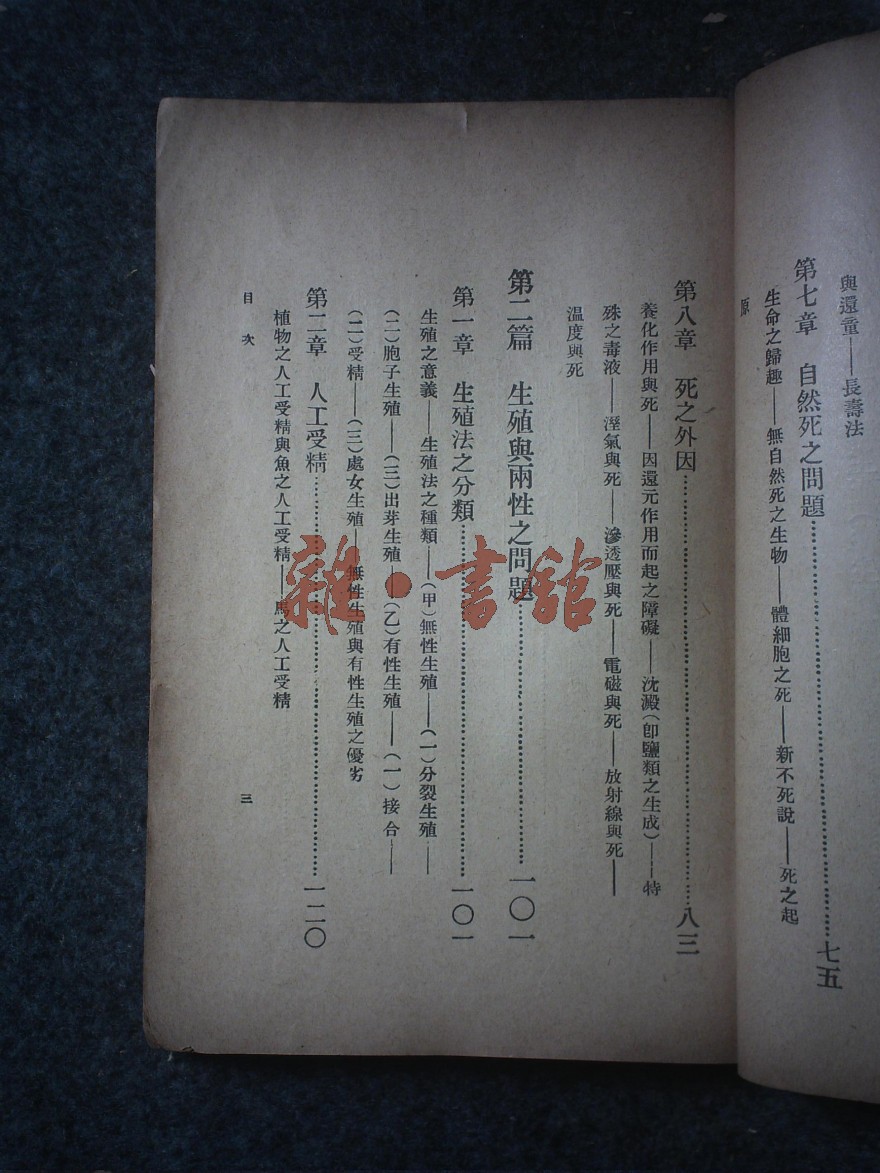 與還童——長壽法
第七章　自然死之問題……七五
生命之歸趣——無自然死之生物——體細胞之死——新不死說——死之起
原
第八章　死之外因……八三
養化作用與死——因還元作用而起之障礙——沈澱（卽鹽類之生成）——特
殊之毒液——溼氣與死——滲透壓與死——電磁與死——放射線與死——
温度與死
第二篇　生殖與兩性之問題……一〇一
第一章　生殖法之分類……一〇一
生殖之意義——生殖法之種類——（甲）無性生殖——（一）分裂生殖——
（二）胞子生殖——（三）出芽生殖——（乙）有性生殖——（一）接合——
（二）受精——（三）處女生殖——無性生殖與有性生殖之優劣
第二章　人工受精……一二〇
植物之人工受精與魚之人工受精——馬之人工受精
目次
三
雜·書館